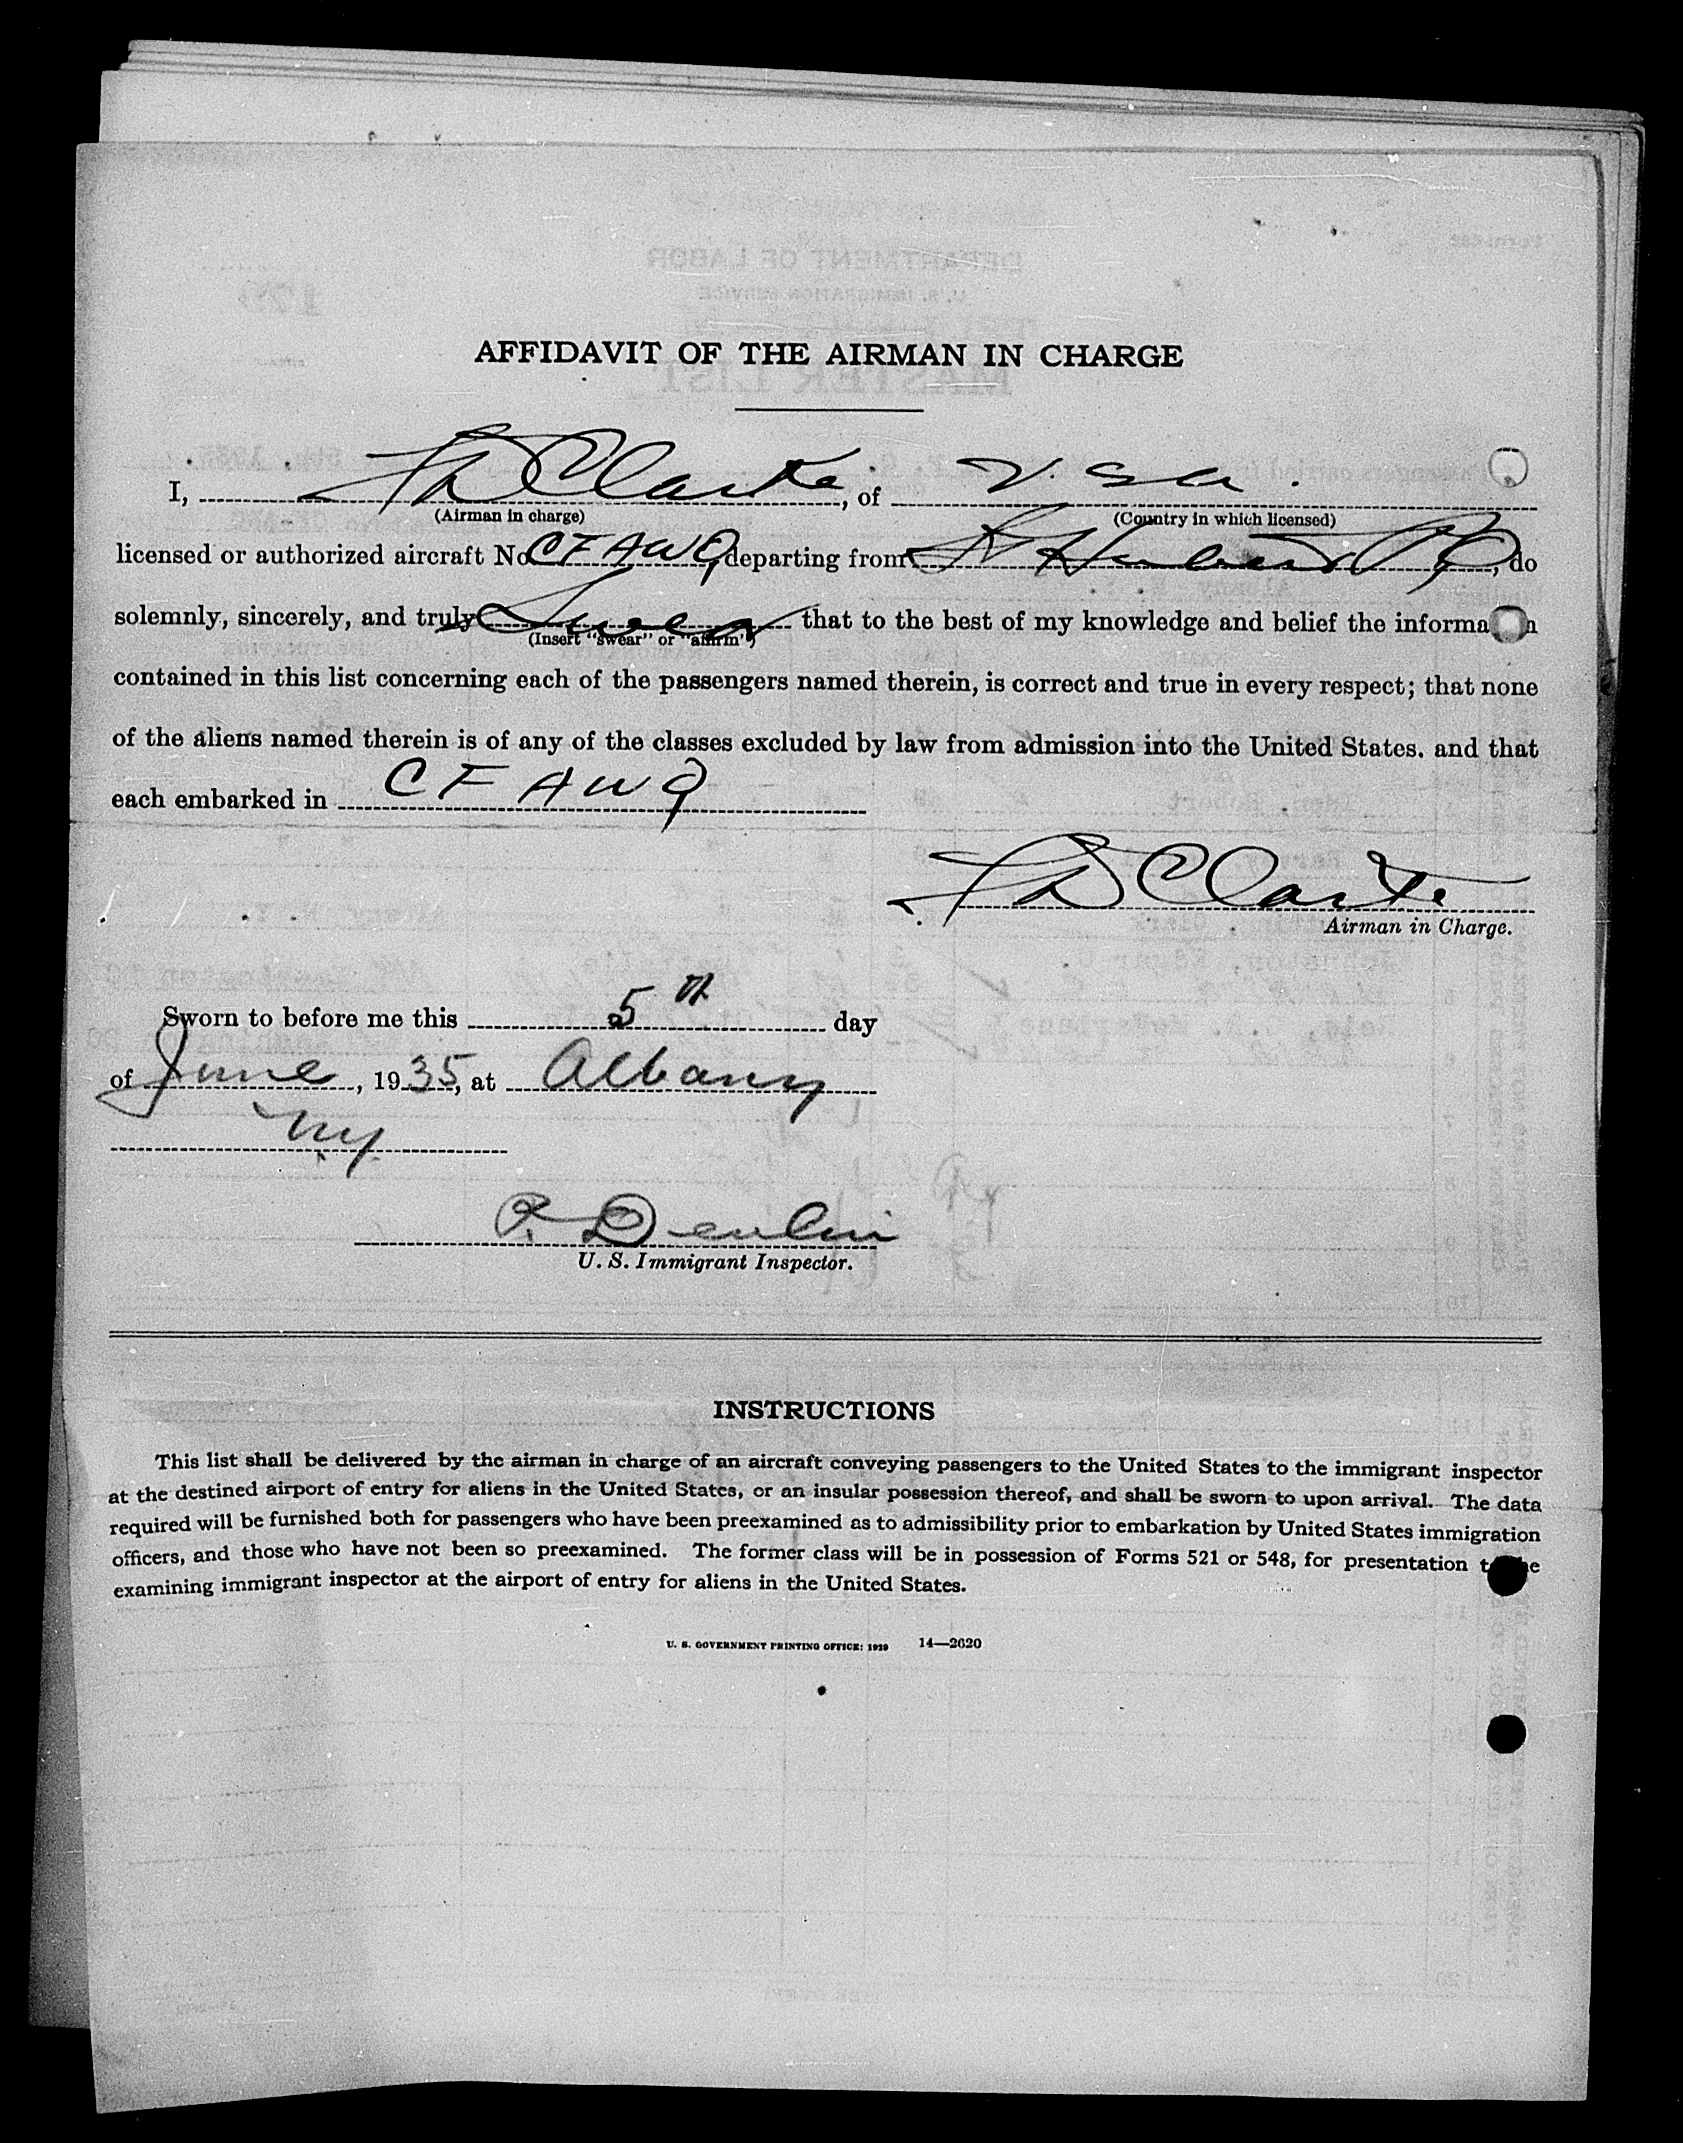 AFFIDAVIT OF THE AIRMAN IN CHARGE
I, Clarke, of U.S.A.
(Airman in charge) (Country in which licensed)
licensed or authorized aircraft No. CFAWQ departing from St Hubert PQ, do
solemnly, sincerely, and truly Swear that to the best of my knowledge and belief the informa n
(Insert "swear" or "affirm")
contained in this list concerning each of the passengers named therein, is correct and true in every respect; that none
of the aliens named therein is of any of the classes excluded by law from admission into the United States, and that
each embarked in CF AWQ
Clarke
Airman in Charge.
Sworn to before me this 5th day
of June, 1935, at Albany
NY
U. S. Immigrant Inspector.
INSTRUCTIONS
This list shall be delivered by the airman in charge of an aircraft conveying passengers to the United States to the immigrant inspector
at the destined airport of entry for aliens in the United States, or an insular possession thereof, and shall be sworn to upon arrival. The data
required will be furnished both for passengers who have been preexamined as to admissibility prior to embarkation by United States immigration
officers, and those who have not been so preexamined. The former class will be in possession of Forms 521 or 548, for presentation to the
examining immigrant inspector at the airport of entry for aliens in the United States.
U. S. GOVERNMENT PRINTING OFFICE: 1929 14—2620